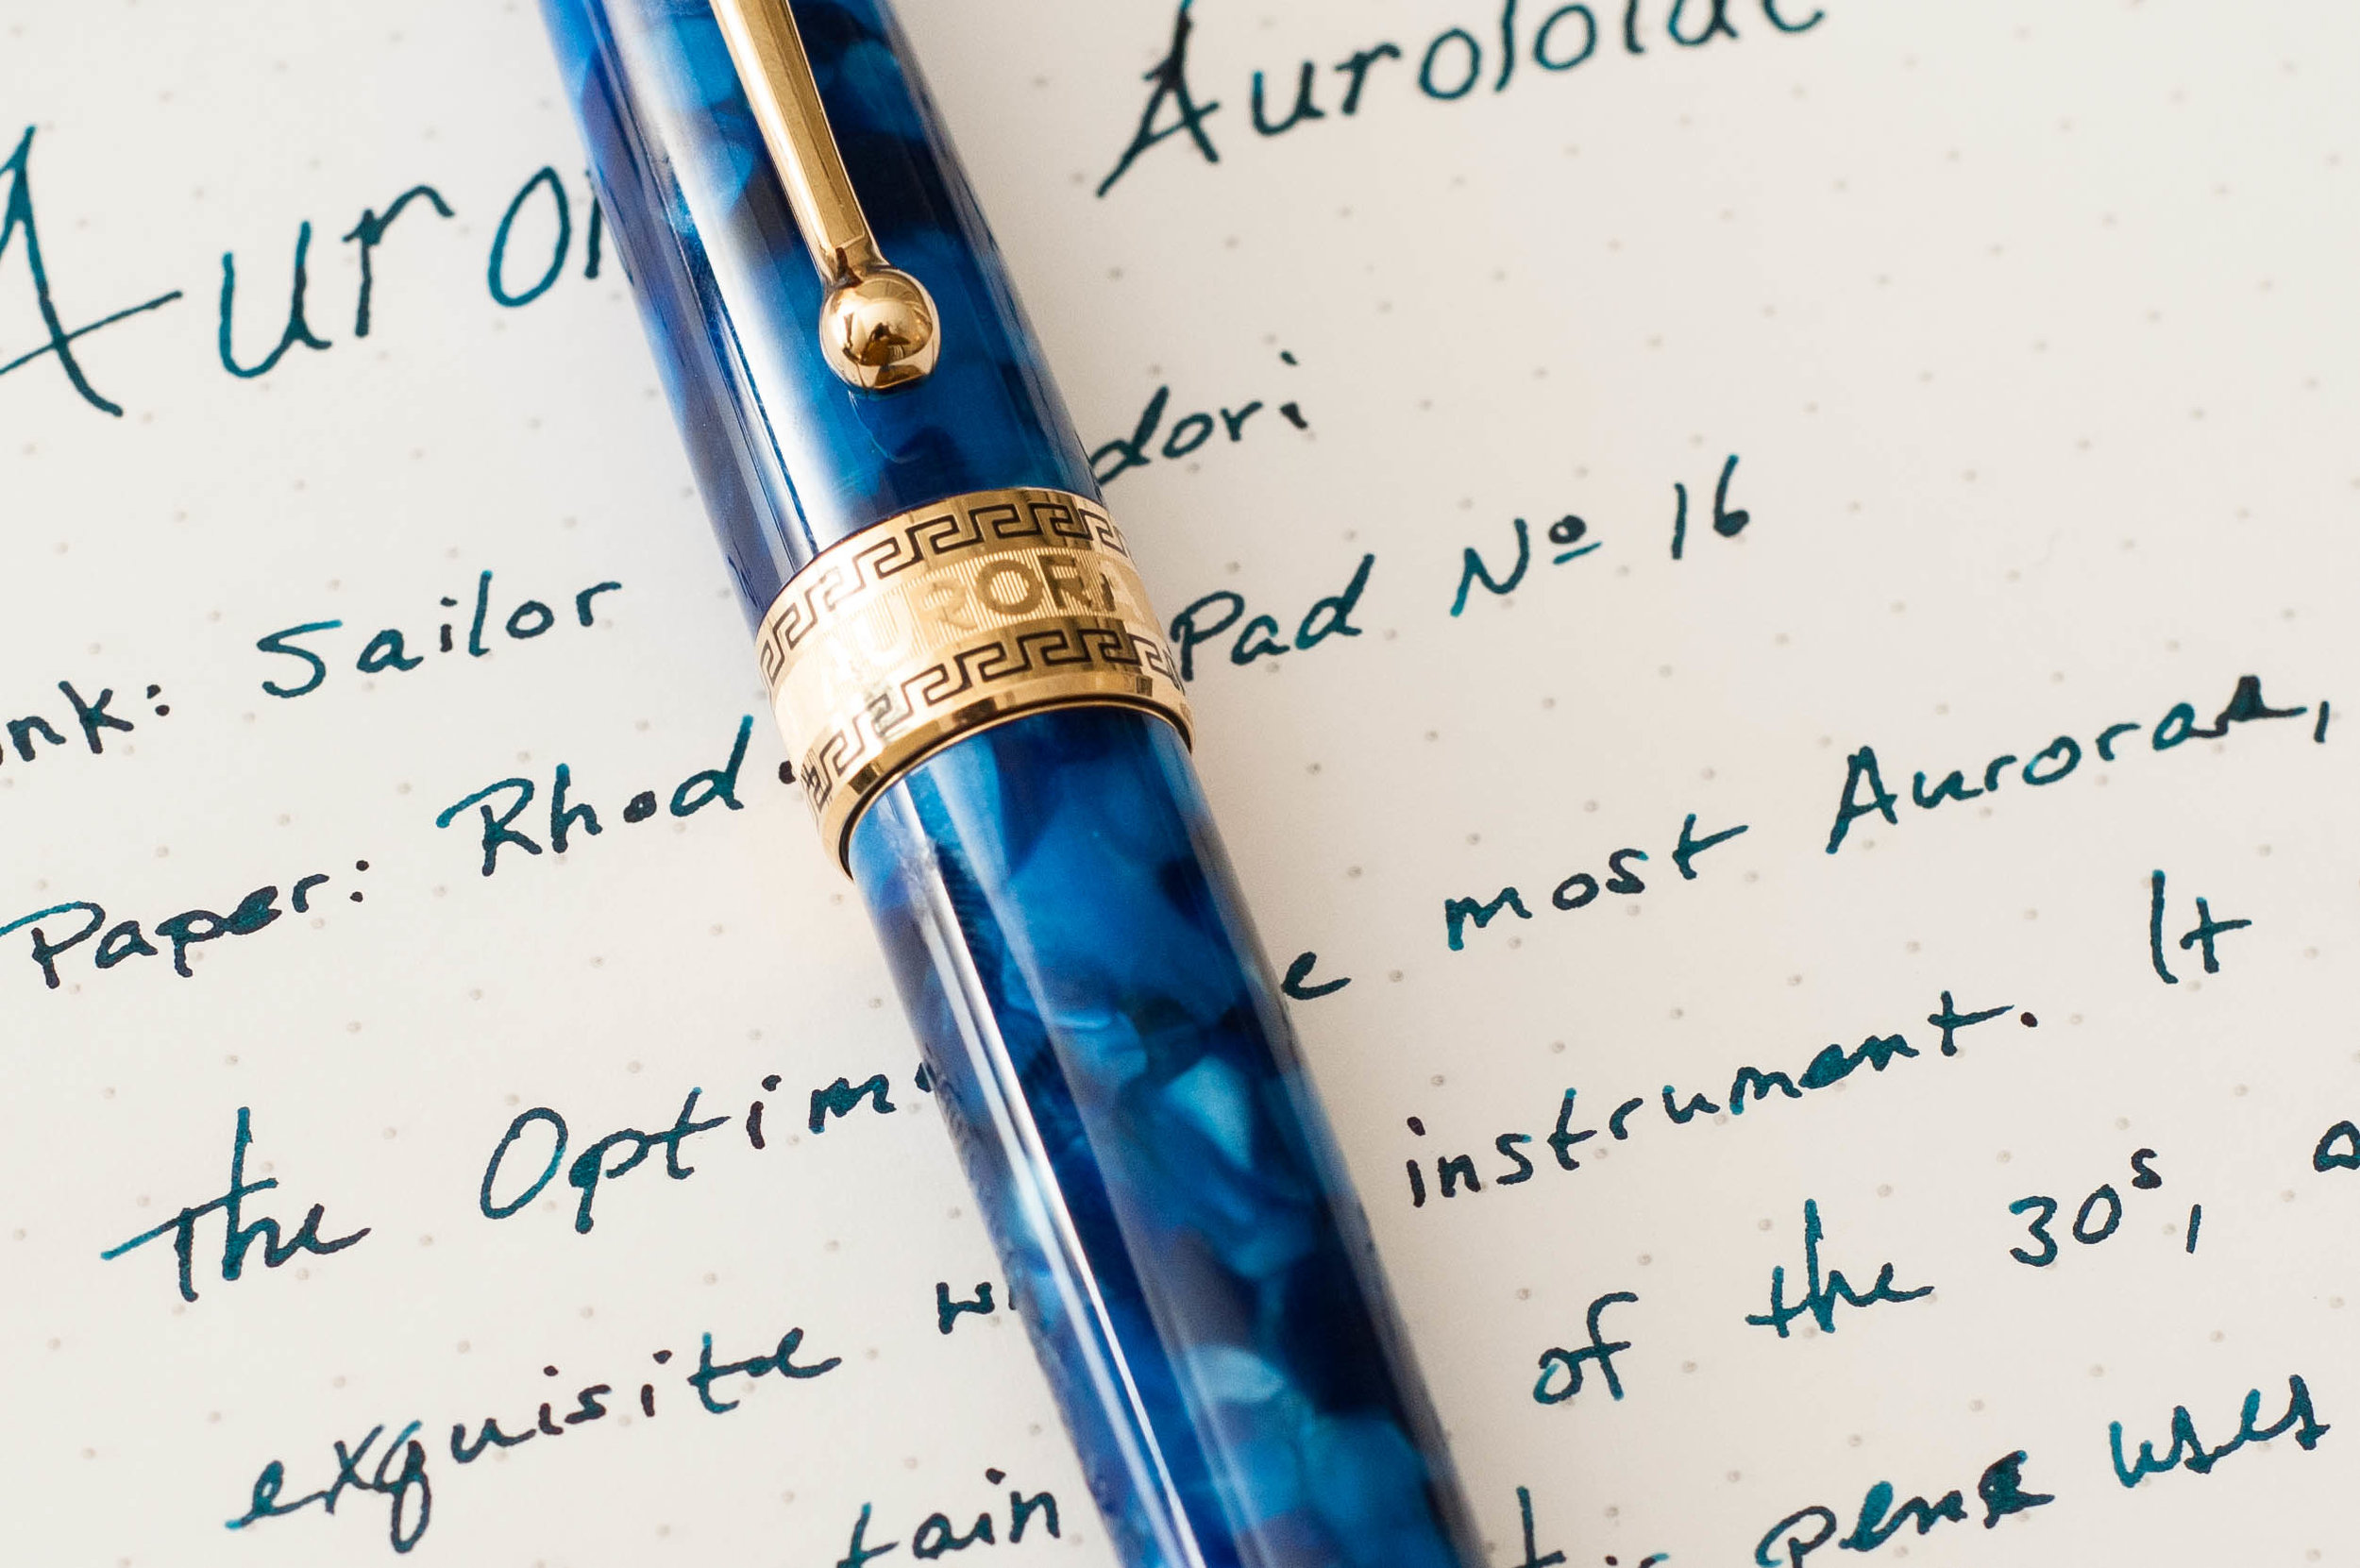 Auror Auroloide
nk: Sailor dori
Paper: Rhod Pad Nº 16
AURORA
The Optim e most Auroras,
exquisite w instrument. It
tain of the 30s, a
pens uses